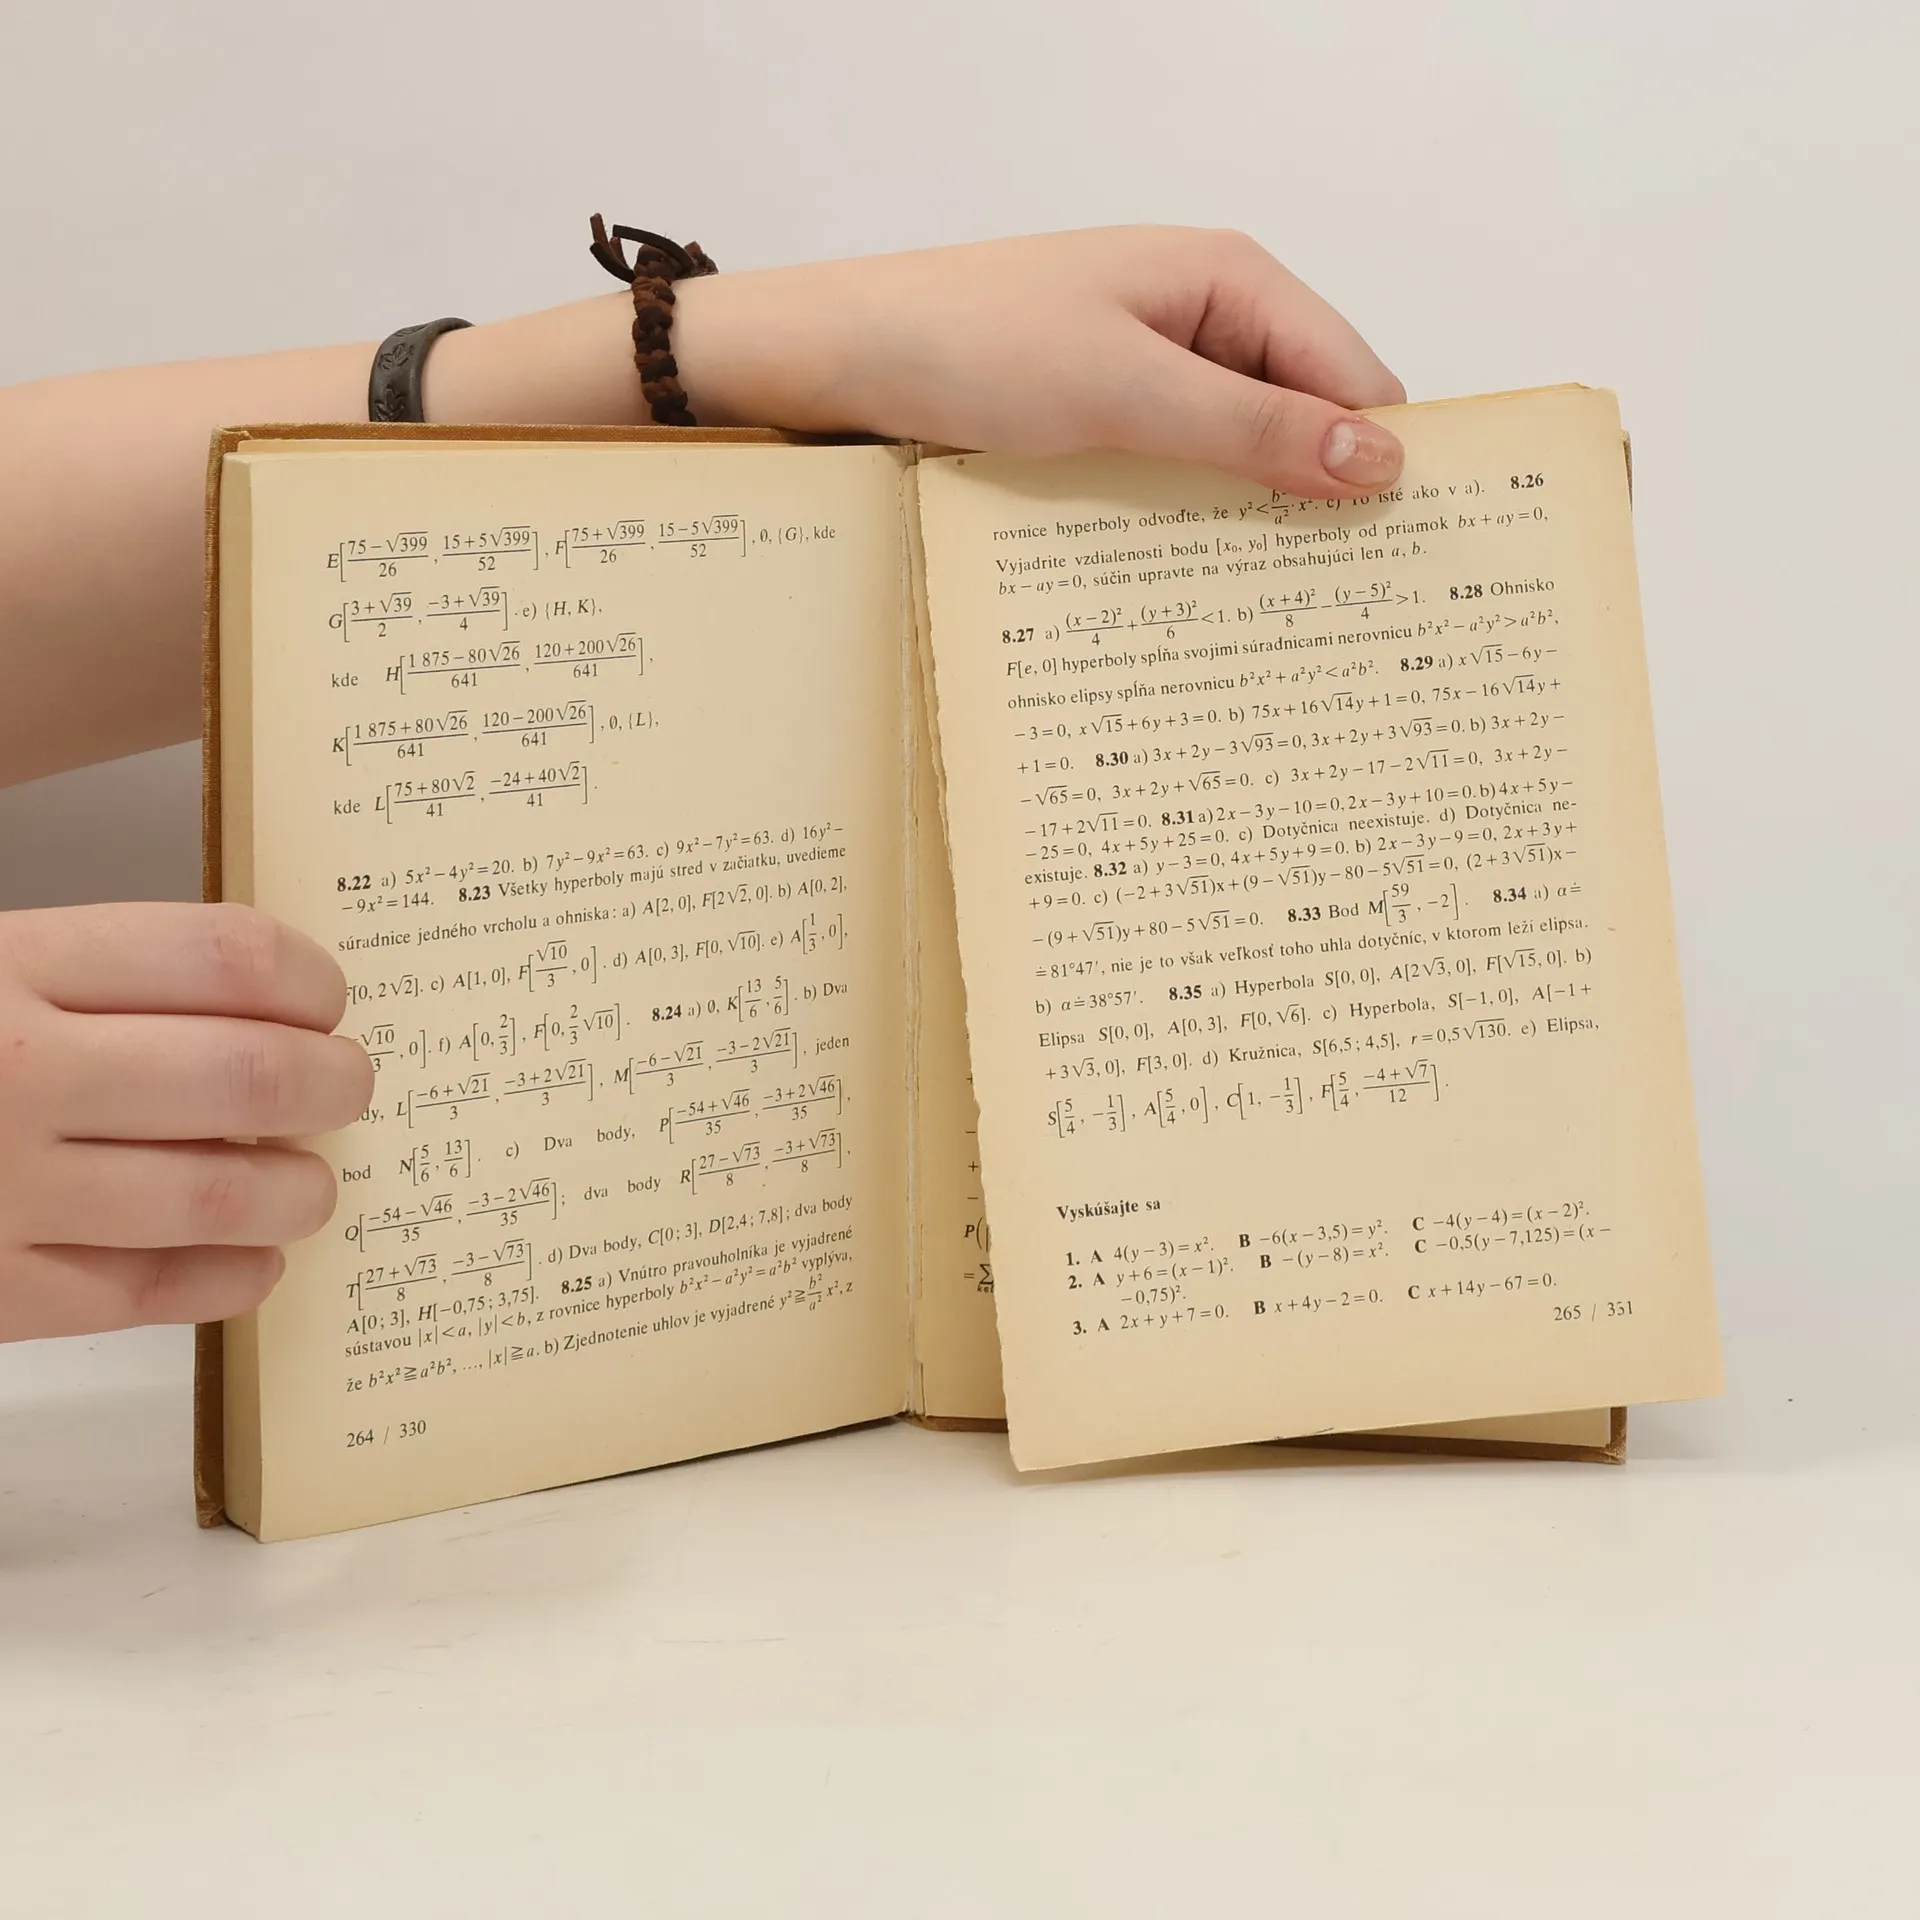 E[(75−√399)/26, (15+5√399)/52], F[(75+√399)/26, (15−5√399)/52], ∅, {G}, kde
G[(3+√39)/2, (−3+√39)/4]. e) {H, K},
kde H[(1 875−80√26)/641, (120+200√26)/641],
K[(1 875+80√26)/641, (120−200√26)/641], ∅, {L},
kde L[(75+80√2)/41, (−24+40√2)/41].
8.22 a) 5x²−4y²=20. b) 7y²−9x²=63. c) 9x²−7y²=63. d) 16y²−
−9x²=144. 8.23 Všetky hyperboly majú stred v začiatku, uvedieme
súradnice jedného vrcholu a ohniska: a) A[2, 0], F[2√2, 0]. b) A[0, 2],
F[0, 2√2]. c) A[1, 0], F[√10/3, 0]. d) A[0, 3], F[0, √10]. e) A[1/3, 0],
√10/3, 0]. f) A[0, 2/3], F[0, 2/3 √10]. 8.24 a) ∅, K[13/6, 5/6]. b) Dva
dy, L[(−6+√21)/3, (−3+2√21)/3], M[(−6−√21)/3, (−3−2√21)/3], jeden
bod N[5/6, 13/6]. c) Dva body, P[(−54+√46)/35, (−3+2√46)/35],
Q[(−54−√46)/35, (−3−2√46)/35]; dva body R[(27−√73)/8, (−3+√73)/8],
T[(27+√73)/8, (−3−√73)/8]. d) Dva body, C[0; 3], D[2,4; 7,8]; dva body
A[0; 3], H[−0,75; 3,75]. 8.25 a) Vnútro pravouholníka je vyjadrené
sústavou |x|<a, |y|<b, z rovnice hyperboly b²x²−a²y²=a²b² vyplýva,
že b²x²≧a²b², ..., |x|≧a. b) Zjednotenie uhlov je vyjadrené y²≧b²/a² x², z
264 / 330
rovnice hyperboly odvoďte, že y²<b²/a²·x². c) To isté ako v a). 8.26
Vyjadrite vzdialenosti bodu [x₀, y₀] hyperboly od priamok bx+ay=0,
bx−ay=0, súčin upravte na výraz obsahujúci len a, b.
8.27 a) (x−2)²/4+(y+3)²/6<1. b) (x+4)²/8−(y−5)²/4>1. 8.28 Ohnisko
F[e, 0] hyperboly spĺňa svojimi súradnicami nerovnicu b²x²−a²y²>a²b²,
ohnisko elipsy spĺňa nerovnicu b²x²+a²y²<a²b². 8.29 a) x√15−6y−
−3=0, x√15+6y+3=0. b) 75x+16√14y+1=0, 75x−16√14y+
+1=0. 8.30 a) 3x+2y−3√93=0, 3x+2y+3√93=0. b) 3x+2y−
−√65=0, 3x+2y+√65=0. c) 3x+2y−17−2√11=0, 3x+2y−
−17+2√11=0. 8.31 a) 2x−3y−10=0, 2x−3y+10=0. b) 4x+5y−
−25=0, 4x+5y+25=0. c) Dotyčnica neexistuje. d) Dotyčnica ne-
existuje. 8.32 a) y−3=0, 4x+5y+9=0. b) 2x−3y−9=0, 2x+3y+
+9=0. c) (−2+3√51)x+(9−√51)y−80−5√51=0, (2+3√51)x−
−(9+√51)y+80−5√51=0. 8.33 Bod M[59/3, −2]. 8.34 a) α≐
≐81°47′, nie je to však veľkosť toho uhla dotyčníc, v ktorom leží elipsa.
b) α≐38°57′. 8.35 a) Hyperbola S[0, 0], A[2√3, 0], F[√15, 0]. b)
Elipsa S[0, 0], A[0, 3], F[0, √6]. c) Hyperbola, S[−1, 0], A[−1+
+3√3, 0], F[3, 0]. d) Kružnica, S[6,5; 4,5], r=0,5√130. e) Elipsa,
S[5/4, −1/3], A[5/4, 0], C[1, −1/3], F[5/4, (−4+√7)/12].
Vyskúšajte sa
1. A 4(y−3)=x². B −6(x−3,5)=y². C −4(y−4)=(x−2)².
2. A y+6=(x−1)². B −(y−8)=x². C −0,5(y−7,125)=(x−
−0,75)².
3. A 2x+y+7=0. B x+4y−2=0. C x+14y−67=0.
265 / 331